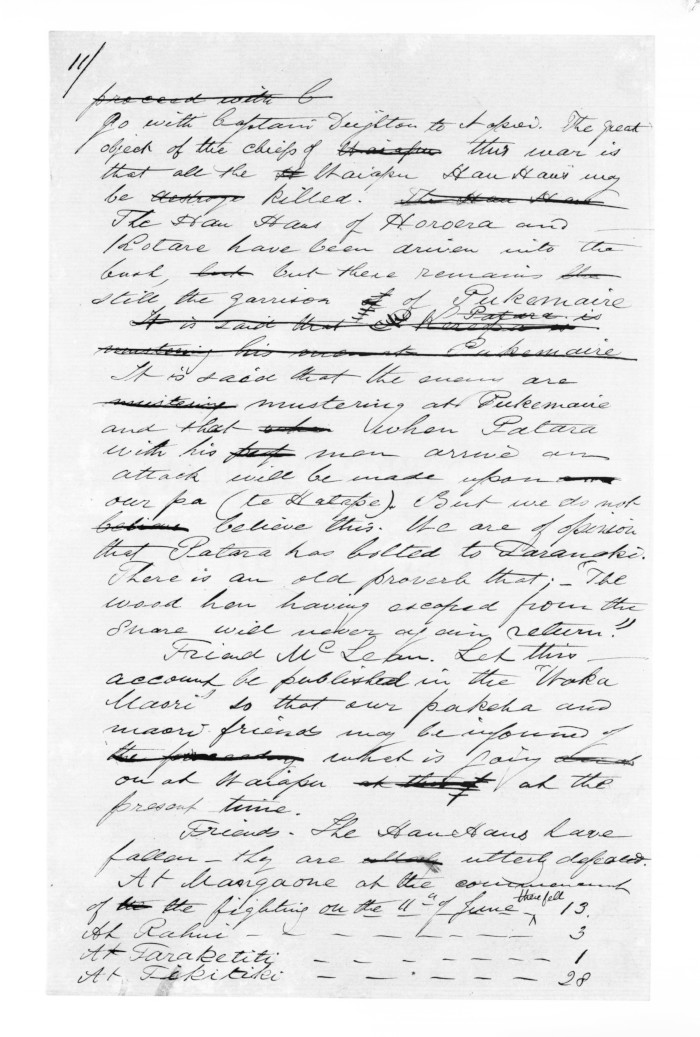 11/
proceed with C
go with Captain Deighton to Hapei. The great
object of the chiefs of Waiapu this war is
that all the H Waiapu Hau Haus may
be destroyed killed. The Hau Haus
The Hau Haus of Horoera and
Kotare have been driven into the
bush, but but there remains the
still the garrison of Pukemaire
It is said that Kereopa Patara is
mustering his men at Pukemaire
It is said that the enemy are
mustering mustering at Pukemaire
and that when when Patara
with his men arrive an
attack will be made upon
our pa (te Hatepe). But we do not
believe believe this. We are of opinion
that Patara has bolted to Taranaki.
There is an old proverb that; – "The
wood hen having escaped from the
snare will never again return."
Friend McLean. Let this
account be published in the "Waka
Maori" so that our pakeha and
maori friends may be informed of
the proceeding what is going
on at Waiapu at that at the
present time.
Friends – The Hau Haus have
fallen – they are utterly defeated.
At Mangaone at the commencement
of the the fighting on the 11th of June there fell 13.
At Rahui – – – – – – – 3
At Taraketiti – – – – – – – 1
At Tikitiki – – – – – – – 28